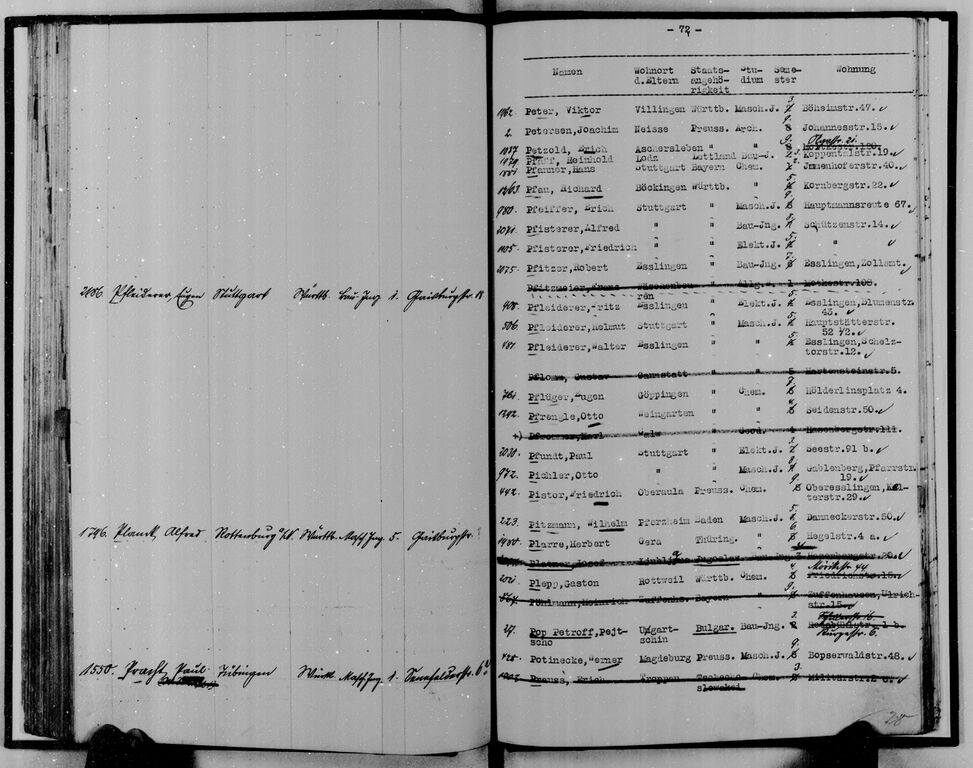 2086. Pfleiderer, Eugen Stuttgart Württb. Bau-Ing. 1. Gaisburgstr. 18
1796. Planck, Alfred Rottenburg a/N. Württb. Masch Ing. 5. Gaisburgstr.
1550. Pracht, Paul Tübingen Württ. Masch Ing. 1. Sennefelderstr. 6
- 72 -
Namen Wohnort Staats- Stu- Seme- Wohnung
d.Eltern angehö- dium ster
rigkeit
1962. Peter, Viktor Villingen Württb. Masch.J. 3. Böheimstr.47.
2. Petersen,Joachim Neisse Preuss. Arch. 9. Johannesstr.15.
1037. Petzold, Erich Aschersleben " " 9.
Pfaff, Reinhold Loda Lettland Bau-J. Koppentalstr.19
Pfanner,Hans Stuttgart Bayern Chem. Immenhoferstr.40.
1363. Pfau, Richard Böckingen Württb. " 5. Kornbergstr.22.
980. Pfeiffer, Erich Stuttgart " Masch.J. Hauptmannsreute 67.
2071. Pfisterer,Alfred " " Bau-Jng. 8. Schützenstr.14.
1105. Pfisterer,Friedrich " " Elekt.J. 5. "
2075. Pfitzer,Robert Esslingen " Bau-Jng. 7. Esslingen,Zollamt.
Pfitzmeier, Wäschenbeu- " Allg. 1 108.
ren
408. Pfleiderer,Fritz Esslingen " Elekt.J. 5. Esslingen,Blumenstr
43.
506. Pfleiderer,Helmut Stuttgart " Masch.J. 5. Hauptstätterstr.
52 1/2.
481. Pfleiderer,Walter Esslingen " " 5. Esslingen,Schelz-
torstr.12.
Pflomm, Gustav Cannstatt " " 5 Martensteinstr.5.
781. Pflüger,Eugen Göppingen " Chem. 8. Hölderlinsplatz 4.
1242. Pfrengle,Otto Weingarten " " Seidenstr.50.
+) Pfrommer,Karl Calw " Geod. 4 Hasenbergstr.111.
2038. Pfundt,Paul Stuttgart " Elekt.J. 3. Seestr.91 b.
972. Pichler,Otto " " Masch.J. 8. Gablenberg,Pfarrstr.
19.
442. Pistor,Friedrich Oberaula Preuss. Chem. 9. Oberesslingen,Kel-
terstr.29.
223. Pitzmann, Wilhelm Pforzheim Baden Masch.J. 5. Danneckerstr.50.
1480. Plarre,Herbert Gera Thüring. " 6. Hegelstr.4 a.
Platner,Josef Ljubljana Jugoslav. Hasenbergstr.20.
Mörikestr. 44
201. Plepp,Gaston Rottweil Württb. Chem. 4. Friedrichstr.15.
567. Pöhlmann,Heinrich Zuffenhs. Bayern " 9. Zuffenhausen,Ulrich-
str.15
27. Pop Petroff,Pejt- Ugart- Bulgar. Bau-Jng. 3.
scho schin
428. Potinecke,Werner Magdeburg Preuss. Masch.J. 9. Bopserwaldstr.48.
Preuss, Erich Troppau Tschecho- Chem. 3. Militärstr.2
slowakei